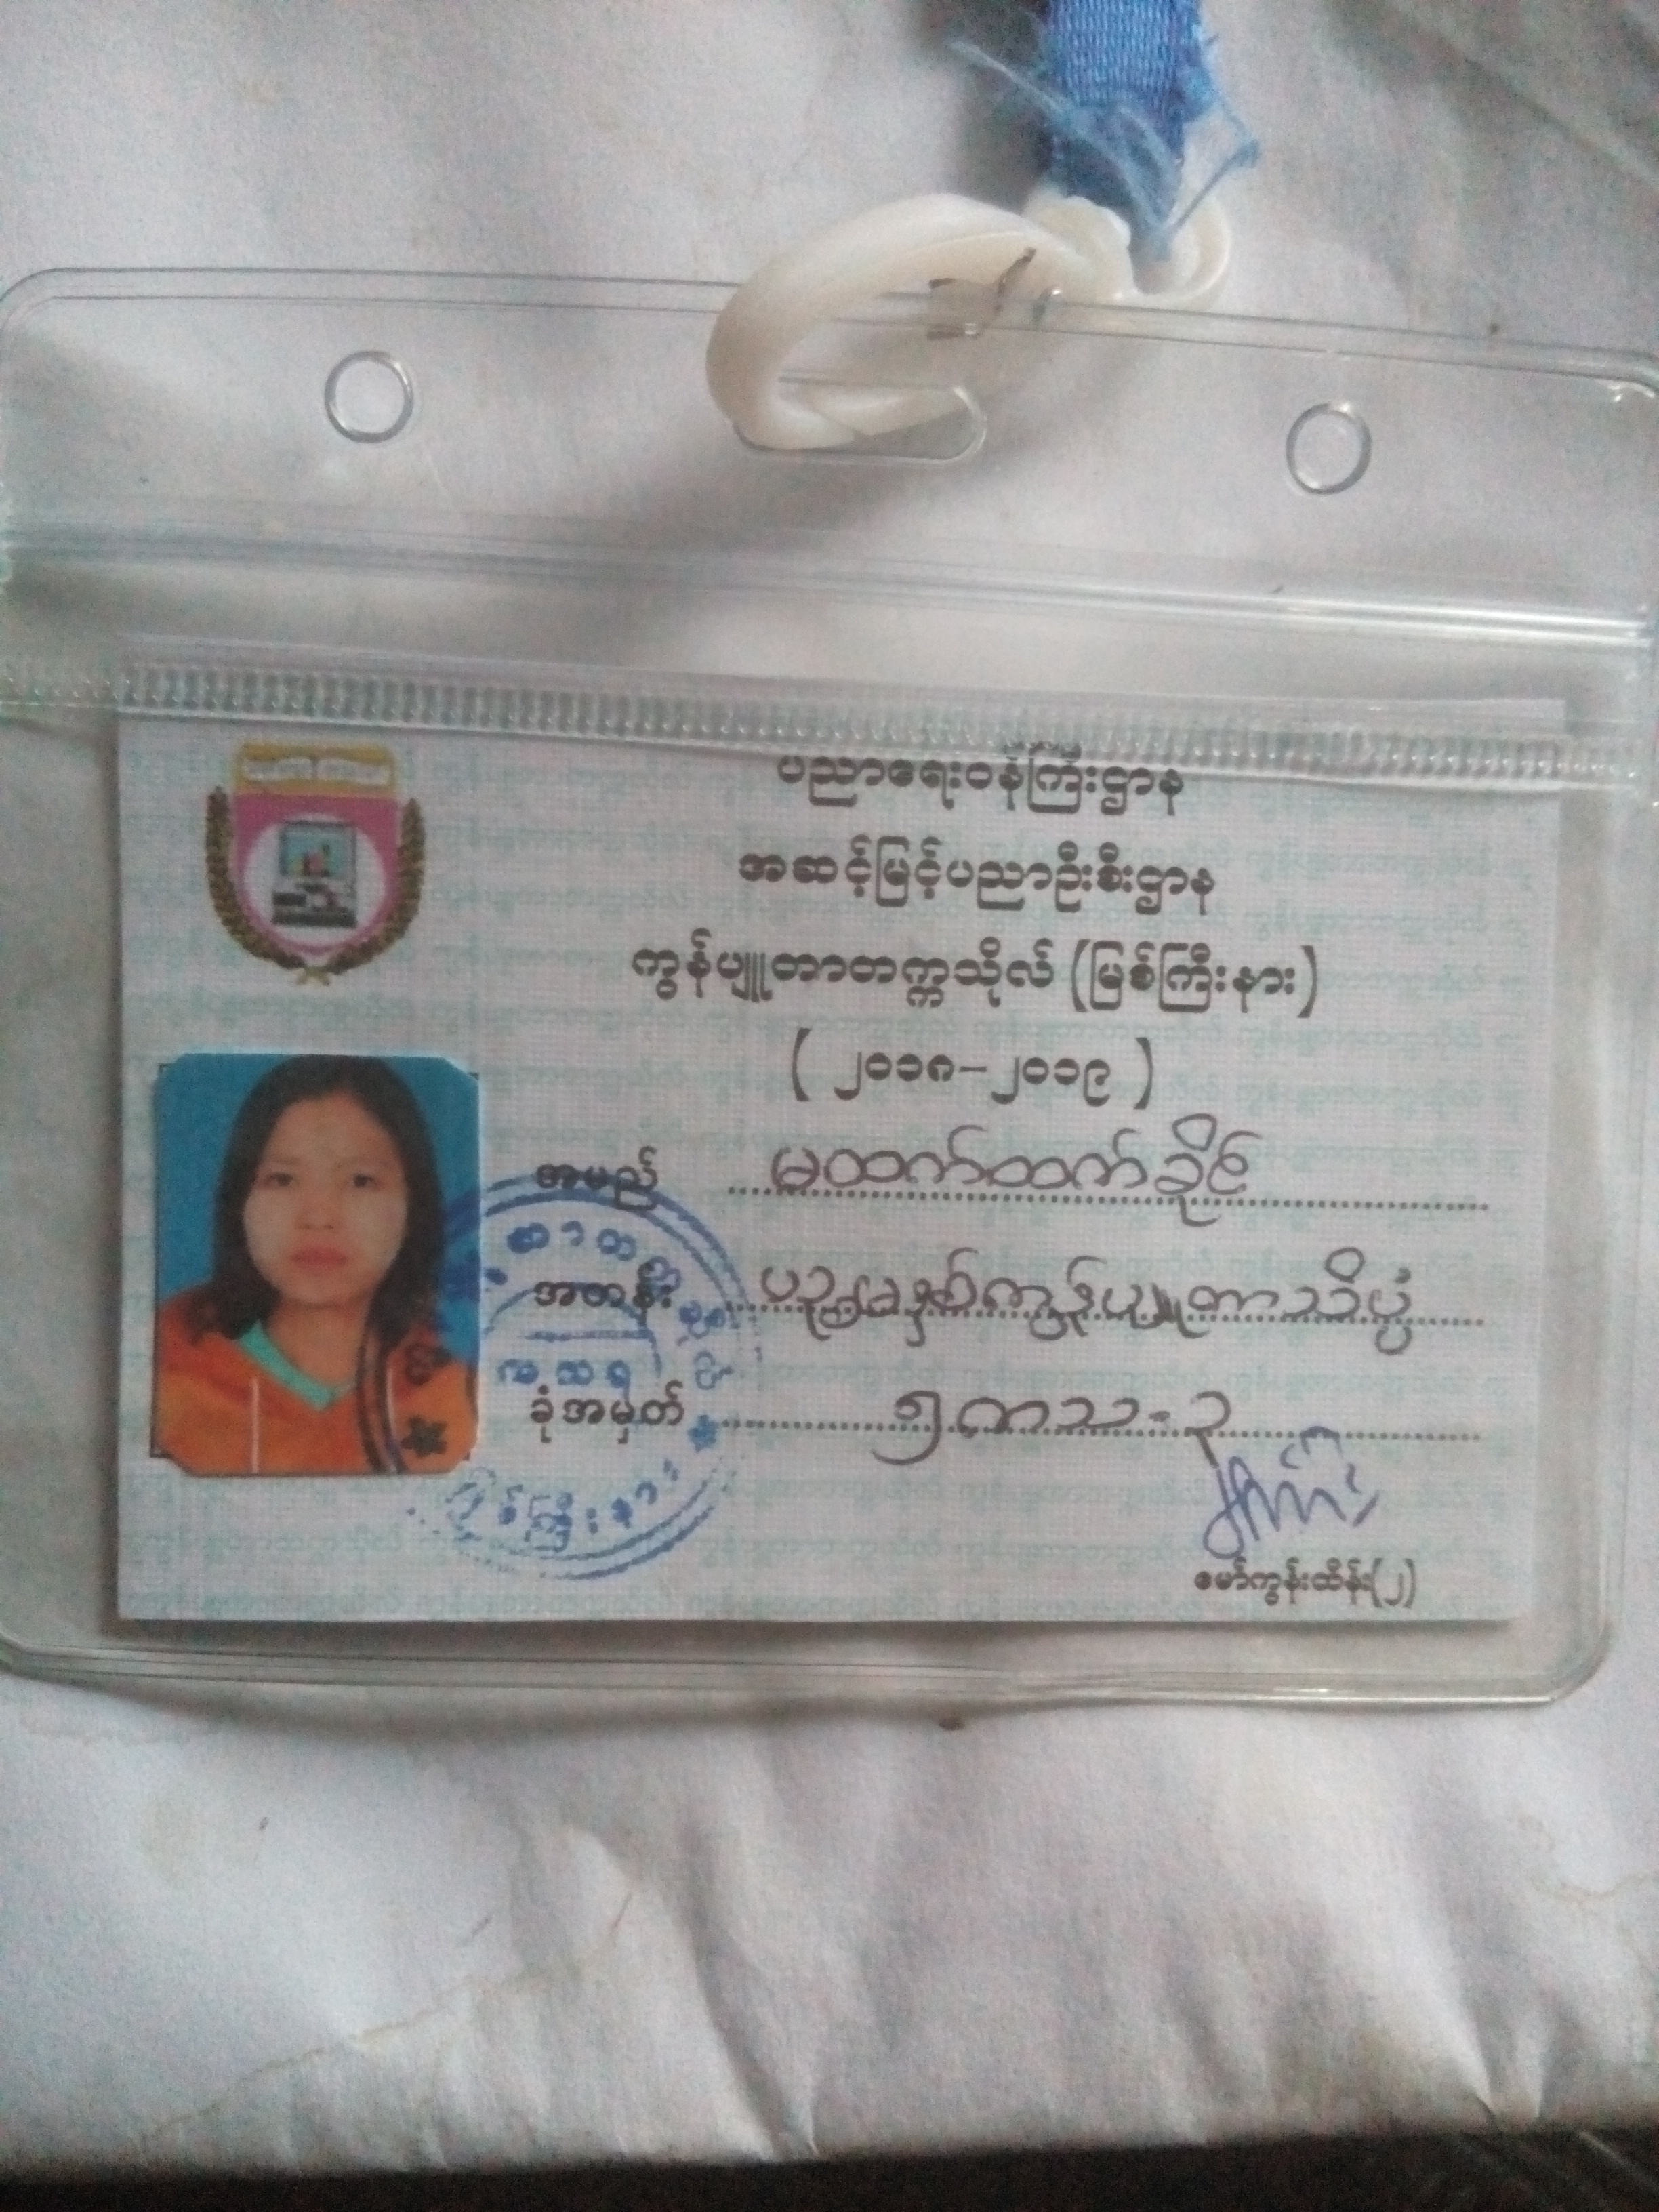 ပညာရေးဝန်ကြီးဌာန
အဆင့်မြင့်ပညာဦးစီးဌာန
ကွန်ပျူတာတက္ကသိုလ် (မြစ်ကြီးနား)
( ၂၀၁၈-၂၀၁၉ )
အမည် မထက်ထက်ခိုင်
အတန်း ပဉ္စမနှစ်ကွန်ပျူတာသိပ္ပံ
ခုံအမှတ် ၅ကသ-၃
မော်ကွန်းထိန်း(၂)
မြစ်ကြီးနား